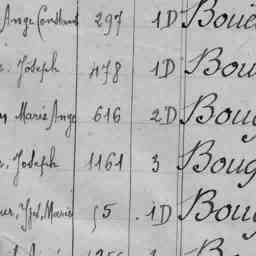 Ange Constant 297 1D Boué
Joseph 478 1D Bou
Marie Ange 616 2D Boug
Joseph 1161 3 Boug
Marie 95 1D Boug